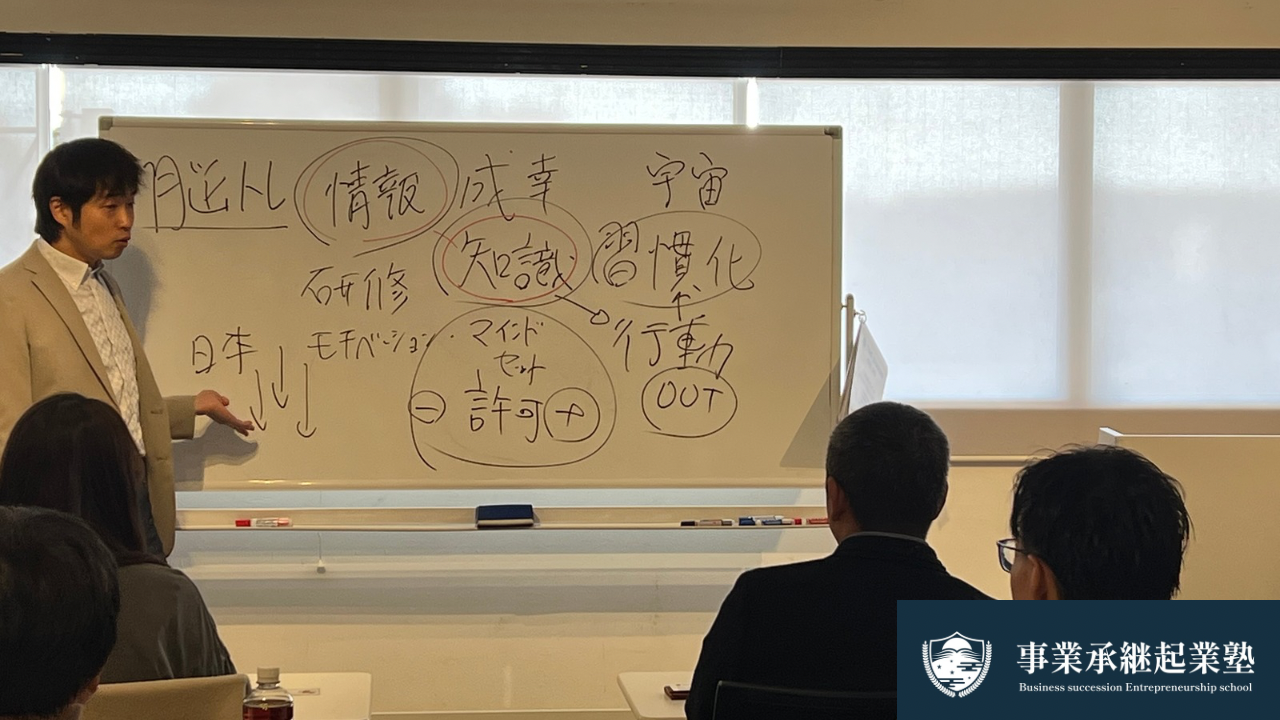 脳トレ 情報 成幸 宇宙
知識 習慣化
研修
日本 モチベーション マインド 行動
セット
⊖ 許可 ⊕ OUT
事業承継起業塾
Business succession Entrepreneurship school